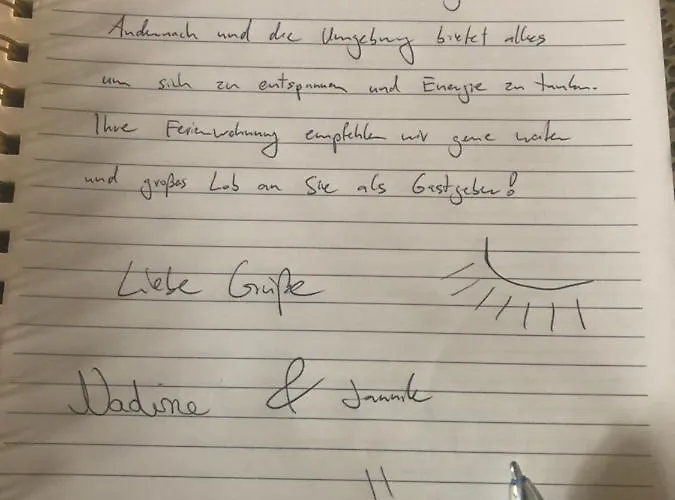 Andernach und die Umgebung bietet alles
um sich zu entspannen und Energie zu tanken.
Ihre Ferienwohnung empfehlen wir gerne weiter
und großes Lob an Sie als Gastgeber!
Liebe Grüße
Nadine & Jannik